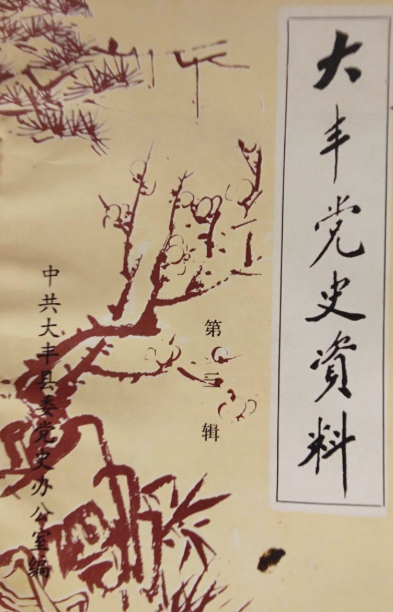 大丰党史資料
第三辑
中共大丰县委党史办公室编